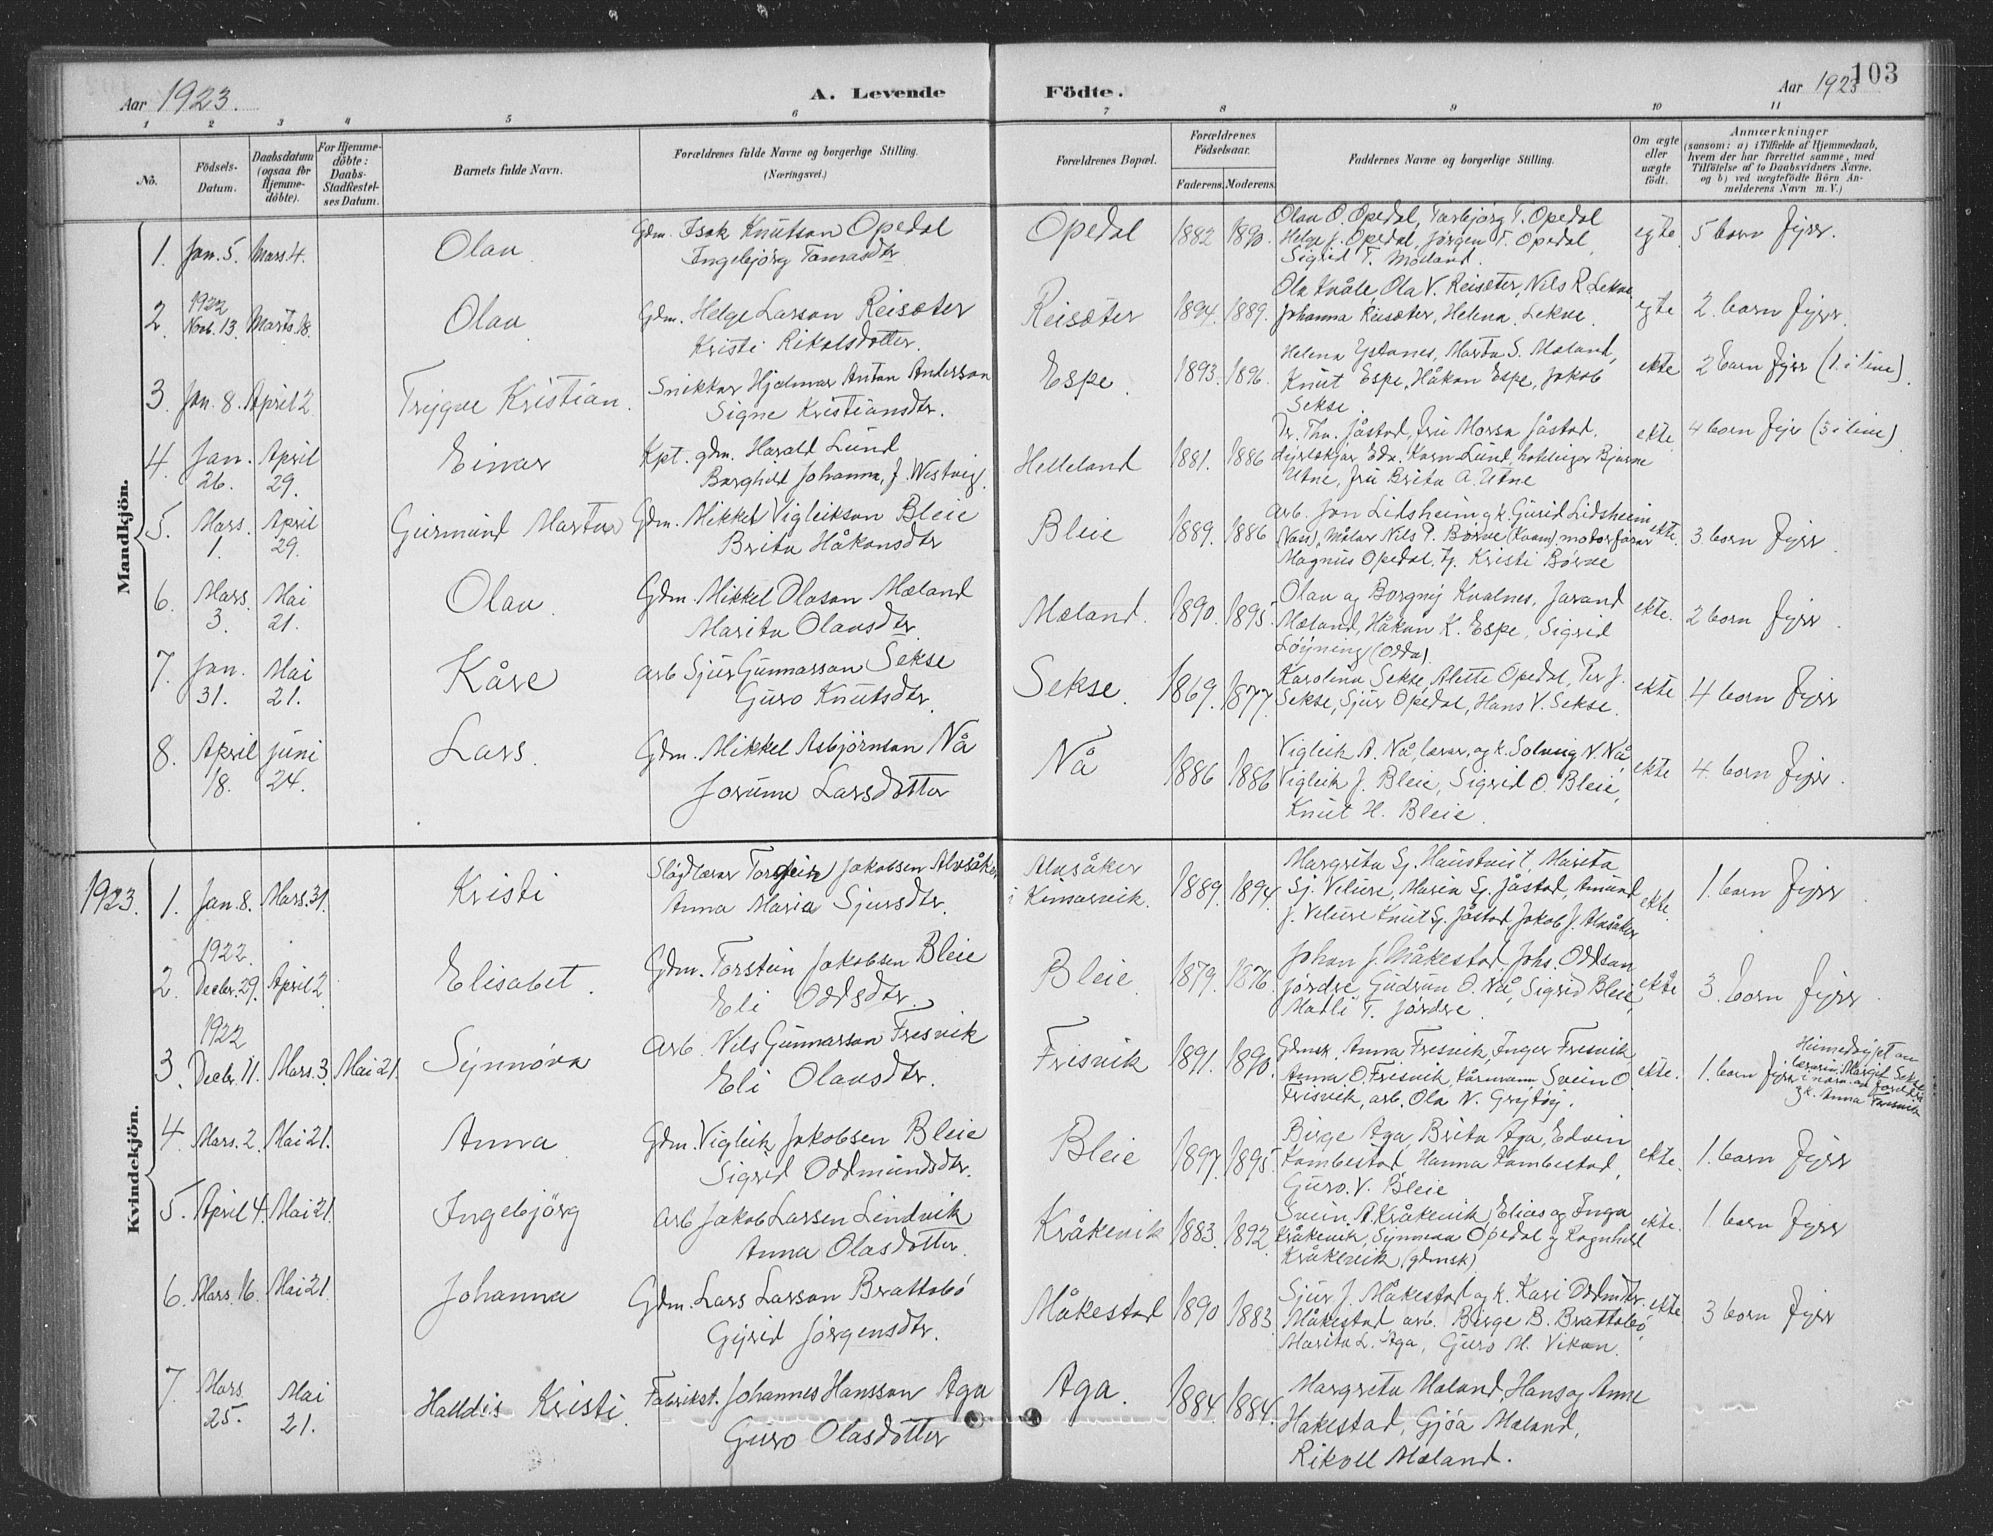 Aar 1923.
A. Levende
Födte.
Aar 1923
103
1 2 3 4 5 6 7 8 9 10 11
No.
Födsels-Datum.
Daabsdatum (ogsaa for Hjemmedöbte).
For Hjemmedöbte: Daabs-Stadfæstelses Datum.
Barnets fulde Navn.
Forældrenes fulde Navne og borgerlige Stilling.
(Næringsvei.)
Forældrenes Bopæl.
Forældrenes Födselsaar.
Faderens. Moderens.
Faddernes Navne og borgerlige Stilling.
Om ægte eller uægte födt.
Anmærkninger
(saasom: a) i Tilfælde af Hjemmedaab,
hvem der har forrettet samme, med
Tilföielse af to Daabsvidners Navne,
og b) ved uægtefödte Börn Anmelderens Navn m. V.)
Mandkjön.
1. Jan. 5. Mars. 4. Olav
Gdm. Isak Knutson Opedal
Ingebjörg Tomasdtr.
Opedal 1882 1890.
Olav O. Opedal, Torbjörg T. Opedal
Helge J. Opedal, Jørgen T. Opedal
Sigrid T. Mæland.
egte 5 born fyrr.
2. 1922 Novb. 13 Marts. 18. Olav
Gdm. Helge Larson Reisæter
Kristi Rikolsdotter.
Reisæter 1894. 1889.
Ola Kvåle, Ola V. Reisæter, Nils R. Lekve
Johanna Reisæter, Helena Lekve.
egte 2. born fyrr.
3. Jan. 8. April 2 Trygve Kristian.
Snikkar Hjalmar Anton Anderson
Signe Kristiansdtr.
Espe 1893. 1896.
Helena Ystanes, Marta S. Mæland,
Knut Espe, Håkon Espe, Jakob
Sekse.
ekte 2 born fyrr (1. i live).
4. Jan. 26. April 29. Einar
Kpt. gdm. Harald Lund
Borghild Johanna, f. Westvig.
Helleland 1881. 1886
Dr. Thv. Jåstad, fru Jåstad.
Lund, Bjarne
Utne, fru Brita A. Utne
ekte 4 born fyrr (3 i live)
5. Mars. 1. April 29. Geirmund Martin
Gdm. Mikkel Vigleikson Bleie
Brita Håkonsdtr
Bleie 1889. 1886
arb. Jon Lidsheim g.k. Gurid Lidsheim
Målar Nils P. Børve (Kvam), motorførar
Magnus Opedal, Kristi Børve
ekte. 3. born fyrr.
6. Mars. 3. Mai 21. Olav.
Gdm. Mikkel Olason Mæland
Marita Olavsdtr.
Mæland. 1890. 1895.
Olav og Borgny Kvalnes, Jarand
Mæland, Håkon K. Espe, Sigrid
Løyning (Odda).
ekte. 2 born fyrr.
7. Jan. 31. Mai 21. Kåre
arb Sjur Gunnarson Sekse
Guro Knutsdtr.
Sekse. 1869. 1877.
Karolina Sekse, Alette Opedal, Per J.
Sekse, Sjur Opedal, Hans V. Sekse.
ekte 4 born fyrr
8. April 18. Juni 24. Lars.
Gdm. Mikkel Asbjörnson Nå
Jorunn Larsdotter
Nå 1886 1886
Vigleik A. Nå, lærar, og k. Solveig V. Nå,
Vigleik J. Bleie, Sigrid O. Bleie,
Knut H. Bleie.
ekte 4. born fyrr.
Kvindekjön.
1923. 1. Jan. 8. Mars. 31. Kristi
Slöjdlærar Torgeir Jakobsen Alvsåker
Anna Maria Sjursdtr.
Alvsåker i Kinsarvik. 1889. 1894
Margrita Sj. Haustveit, Marita
Sj. Velure, Maria Sj. Jåstad, Amund
J. Velure Knut Sj. Jåstad, Jakob J. Alvsåker
ekte. 1. born fyrr
2. 1922. Decbr. 29. April 2. Elisabet.
Gdm. Torstein Jakobsen Bleie
Eli Oddsdtr.
Bleie. 1879. 1876.
Johan J. Måkestad, Johs. Oddson
Jördre, Gudrun O. Nå, Sigrid Bleie,
Matli T. Jördre.
ekte 3. born fyrr.
3. 1922 Decbr. 11. Mars. 3. Mai 21. Synnöva
Arb. Nils Gunnarson Fresvik
Eli Olavsdtr.
Fresvik 1891. 1890.
Gdmsk. Anna Fresvik, Inger Fresvik
Anna O. Fresvik, Kårmann Svein O.
Fresvik, arb. Ola N. Grytöy.
ekte. 1. born fyrr
Heimedöypt av
lærarin. Margit Sekse
i nærv. av foreldra
g.k. Anna Fresvik
4. Mars. 2. Mai 21. Anna
Gdm. Vigleik Jakobsen Bleie
Sigrid Oddmundsdtr.
Bleie 1897. 1895.
Birge Aga, Brita Aga, Edvin
Kambestad, Hanna Kambestad,
Guro. V. Bleie
ekte. 1. born fyrr
5. April 4. Mai 21. Ingebjörg
arb Jakob Larsen Lindvik
Anna Olasdotter.
Kråkevik 1883. 1892
Svein A. Kråkevik, Elias og Inga
Kråkevik, Synneva Opedal og Ragnhild
Kråkevik (gdmsk)
ekte. 1. born fyrr
6. Mars. 16. Mai 21. Johanna
Gdm. Lars Larson Brattabö
Gyrid Jörgensdtr.
Måkestad 1890 1883
Sjur J. Måkestad og k. Kari Oddmdtr.
Måkestad arb. Birge B. Brattabö,
Marita L. Aga, Guro M. Vikan.
ekte 3 born fyrr
7. Mars. 25. Mai 21. Halldis Kristi.
Fabrikst. Johannes Hansson Aga
Guro Olasdotter
Aga. 1884. 1884.
Margreta Mæland, Hans og Anne
Hakestad, Gjöa Mæland,
Rikoll Mæland.